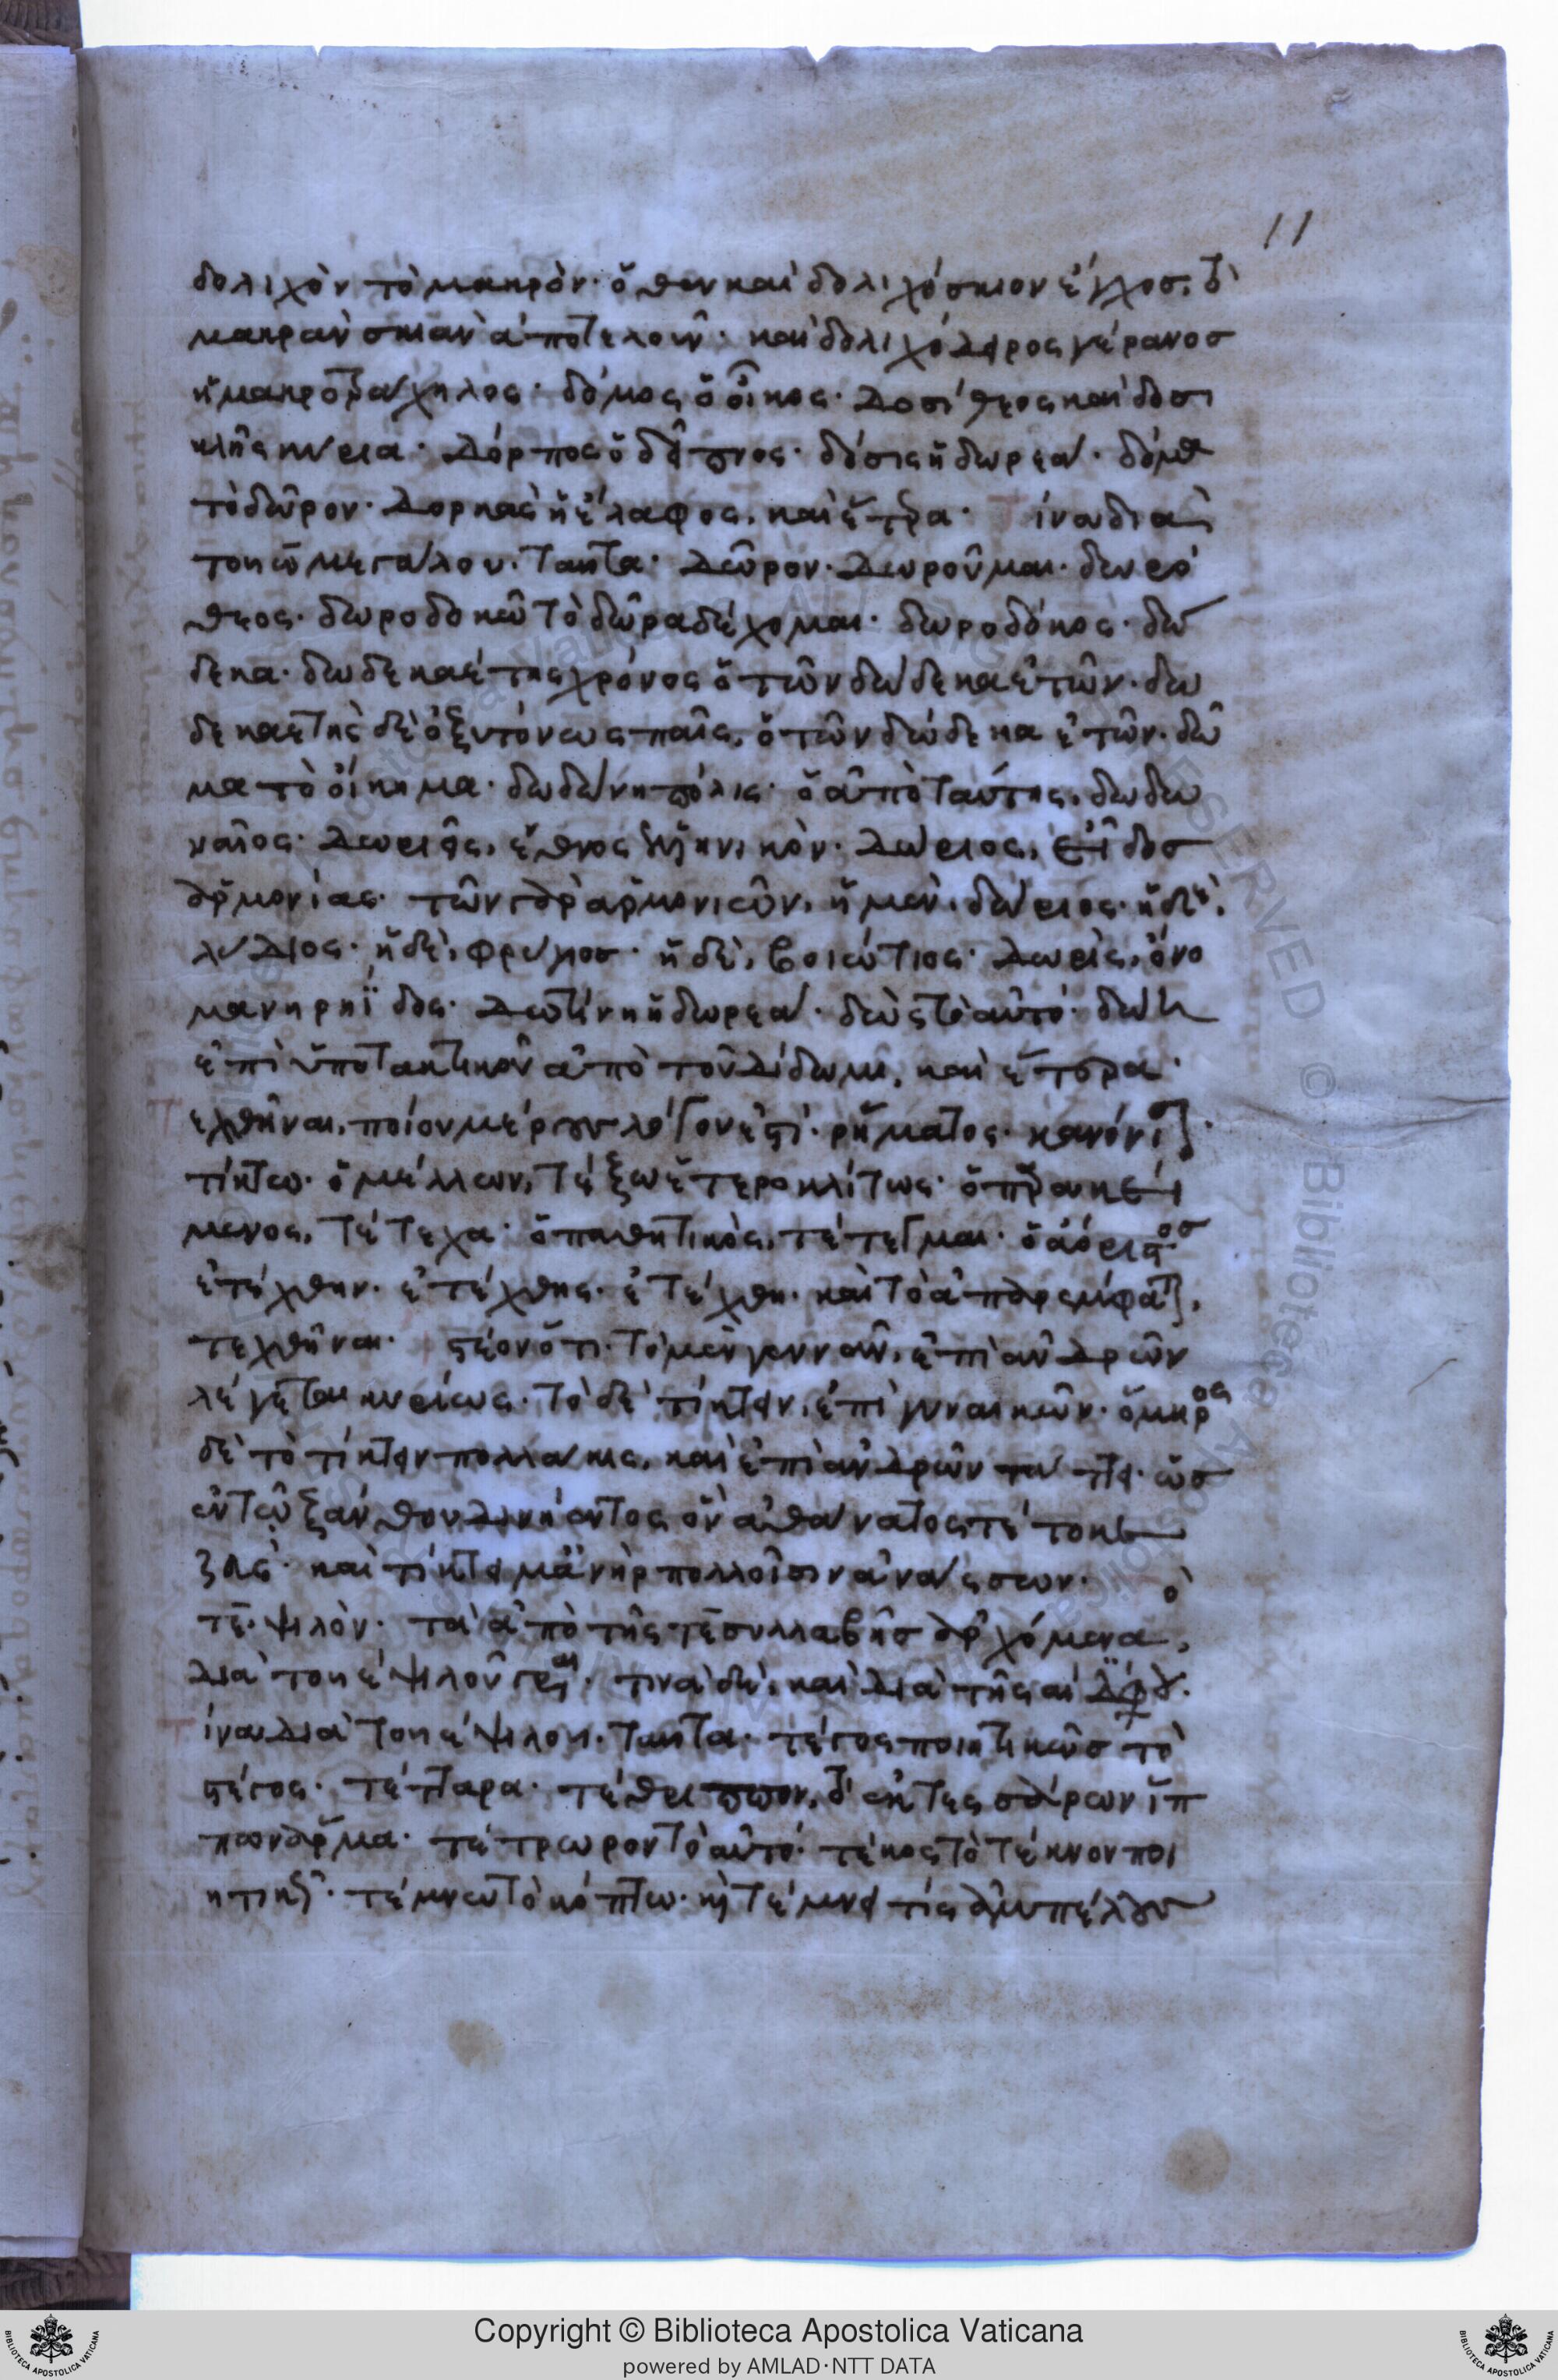 11
δολιχὸν τὸ μακρόν· ὅθεν καὶ δολιχόσκιον ἔγχος, τὸ
μακρὰν σκιὰν ἀποτελοῦν· καὶ δολιχόδειρος γέρανος
ἡ μακροτράχηλος· δόμος ὁ οἶκος· Δοσίθεος καὶ δοσι
κλῆς κύρια· Δόρπος ὁ δεῖπνος· δόσις ἡ δωρεά· δόμα
τὸ δῶρον· Δορκὰς ἡ ἔλαφος, καὶ ἕτερα· Τίνα διὰ
τοῦ ω μεγάλου· Ταῦτα· Δῶρον· Δωροῦμαι· δωρό
θεος· δωροδοκῶ τὸ δῶρα δέχομαι· δωροδόκος· δώ
δεκα· δωδεκαέτης χρόνος ὁ τῶν δώδεκα ἐτῶν· δω
δεκαετὴς δὲ ὀξυτόνως παῖς, ὁ τῶν δώδεκα ἐτῶν· δῶ
μα τὸ οἴκημα· δωδώνη πόλις· ὁ ἀπὸ ταύτης, δωδω
ναῖος· Δωριεῖς, ἔθνος ἑλληνικόν· Δώριος, εἶδος
ἁρμονίας· τῶν γὰρ ἁρμονιῶν, ἡ μὲν, δώριος· ἡ δὲ,
λύδιος· ἡ δὲ, φρύγιος· ἡ δὲ, βοιώτιος· Δωρὶς, ὄνο
μα νηρηΐδος· Δωτίνη ἡ δωρεά· δὼς τὸ αὐτό· δώῃ
ἐπὶ ὑποτακτικοῦ ἀπὸ τοῦ δίδωμι, καὶ ἕτερα·
Τεχθῆναι, ποῖον μέρος λόγου ἐστί· ῥήματος· κανόνισον·
τίκτω· ὁ μέλλων, τέξω ἑτεροκλίτως· ὁ παρακεί
μενος, τέτεχα· ὁ παθητικὸς, τέτεγμαι· ὁ ἀόριστος
ἐτέχθην· ἐτέχθης· ἐτέχθη· καὶ τὸ ἀπαρέμφατον,
τεχθῆναι· ἰστέον ὅτι· τὸ μὲν γεννᾶν, ἐπὶ ἀνδρῶν
λέγεται κυρίως· τὸ δὲ τίκτειν, ἐπὶ γυναικῶν· ὅμηρος
δὲ τὸ τίκτειν πολλάκις, καὶ ἐπὶ ἀνδρῶν τάττει· ὡς
ἐν τῷ ξάνθου δινήεντος ὃν ἀθάνατος τέκετο
ζεύς· καὶ τίκτει μ' ἀνὴρ πολλοῖσιν ἀνάσσων·
τε ψιλόν· τὰ ἀπὸ τῆς τε συλλαβῆς ἀρχόμενα,
διὰ τοῦ ε ψιλοῦ γράφεται· τινὰ δὲ, καὶ διὰ τῆς αι διφθόγγου·
Τίνα διὰ τοῦ ε ψιλοῦ· ταῦτα· τέγος ποιητικῶς τὸ
στέγος· τέτταρα· τέθριππον, τὸ ἐκ τεσσάρων ἵπ
πων ἅρμα· τέτρωρον τὸ αὐτό· τέκος τὸ τέκνον ποι
ητικῶς· τέμνω τὸ κόπτω· καὶ τέμνει τίς ἄμπελον